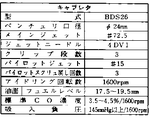 キャブレタ
型式 BDS26
ベンチュリ口径 φ24mm
メインジェット #72.5
ジェットニードル 4DV1
クリップ段数 3
パイロットジェット #15
パイロットスクリュ戻し回数 3
アイドリング回転数 1600rpm
油面/フュエルレベル 17.5~19.5mm
標準CO濃度 3.5~4.5%/1600rpm
吸入負圧 145mmHg以上/1600rpm